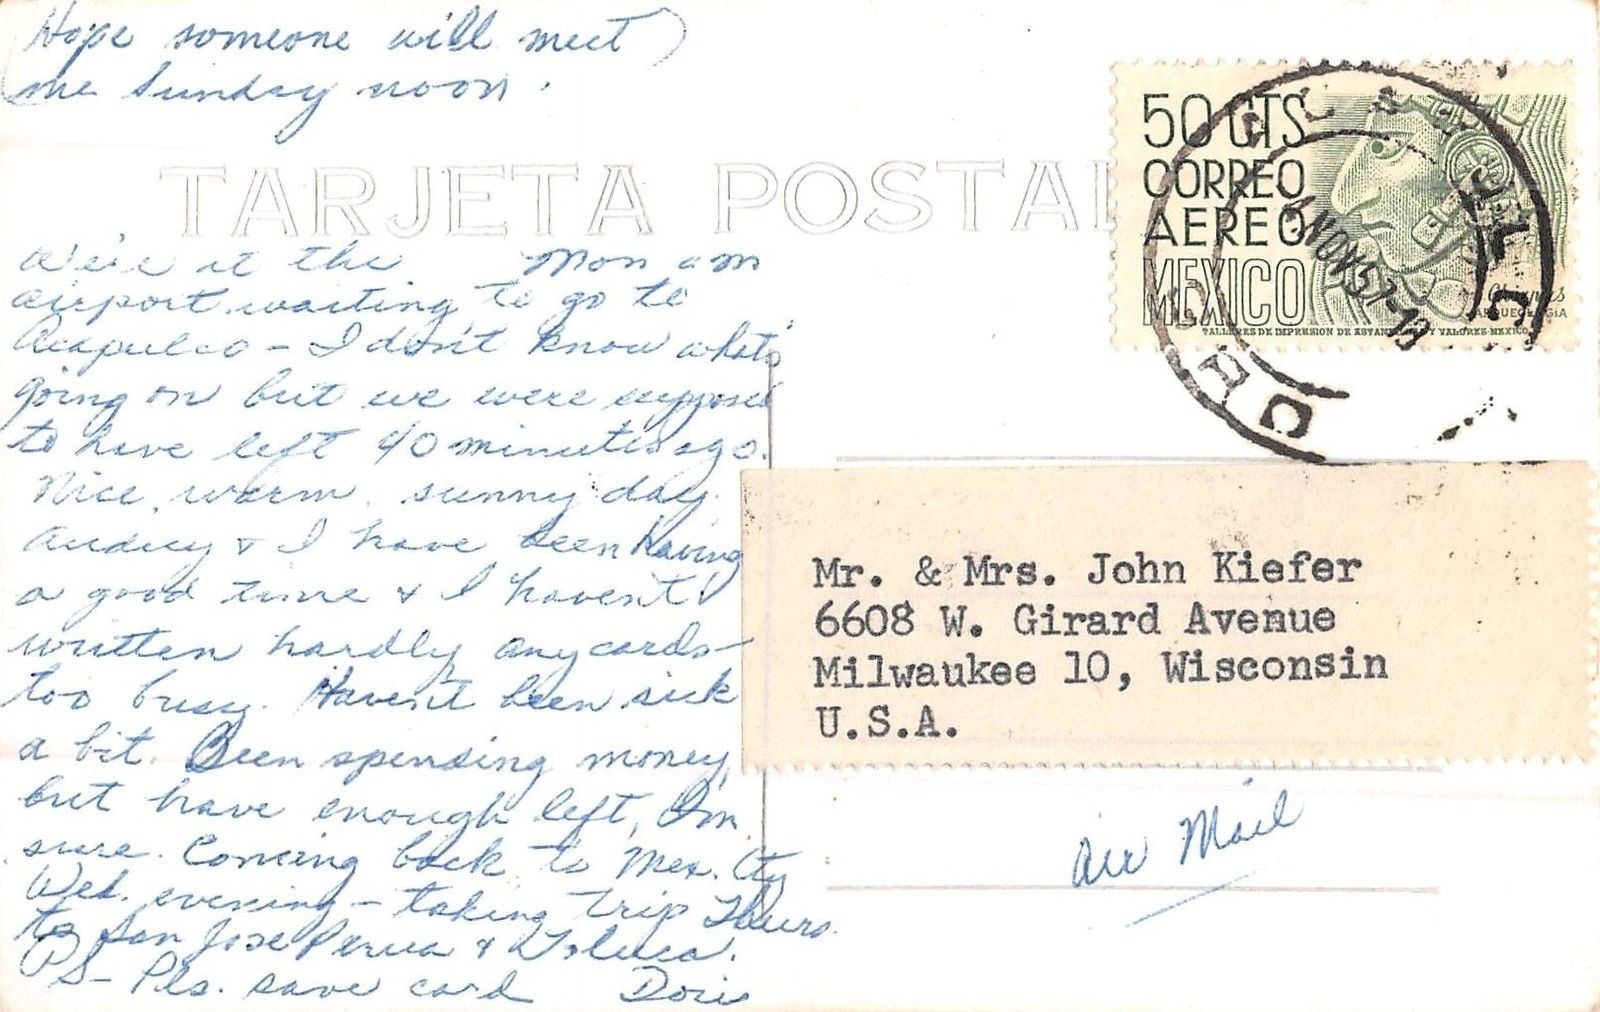 Hope someone will meet
me Sunday noon.
TARJETA POSTAL
50 CTS
CORREO
AEREO
MEXICO
Chiapas
ARQUEOLOGIA
TALLERES DE IMPRESION DE ESTAMPILLAS Y VALORES-MEXICO
NOV 57
Mon am
We're at the
airport waiting to go to
Acapulco - I don't know what's
going on but we were supposed
to have left 40 minutes ago.
Nice, warm, sunny day.
Audrey & I have been having
a good time & I haven't
written hardly any cards -
too busy. Haven't been sick
a bit. Been spending money,
but have enough left, I'm
sure. Coming back to Mex. City
Wed. evening - taking trip Thurs.
to San Jose Perua & Toluca.
PS - Pls. save card Doris
Mr. & Mrs. John Kiefer
6608 W. Girard Avenue
Milwaukee 10, Wisconsin
U.S.A.
Air Mail